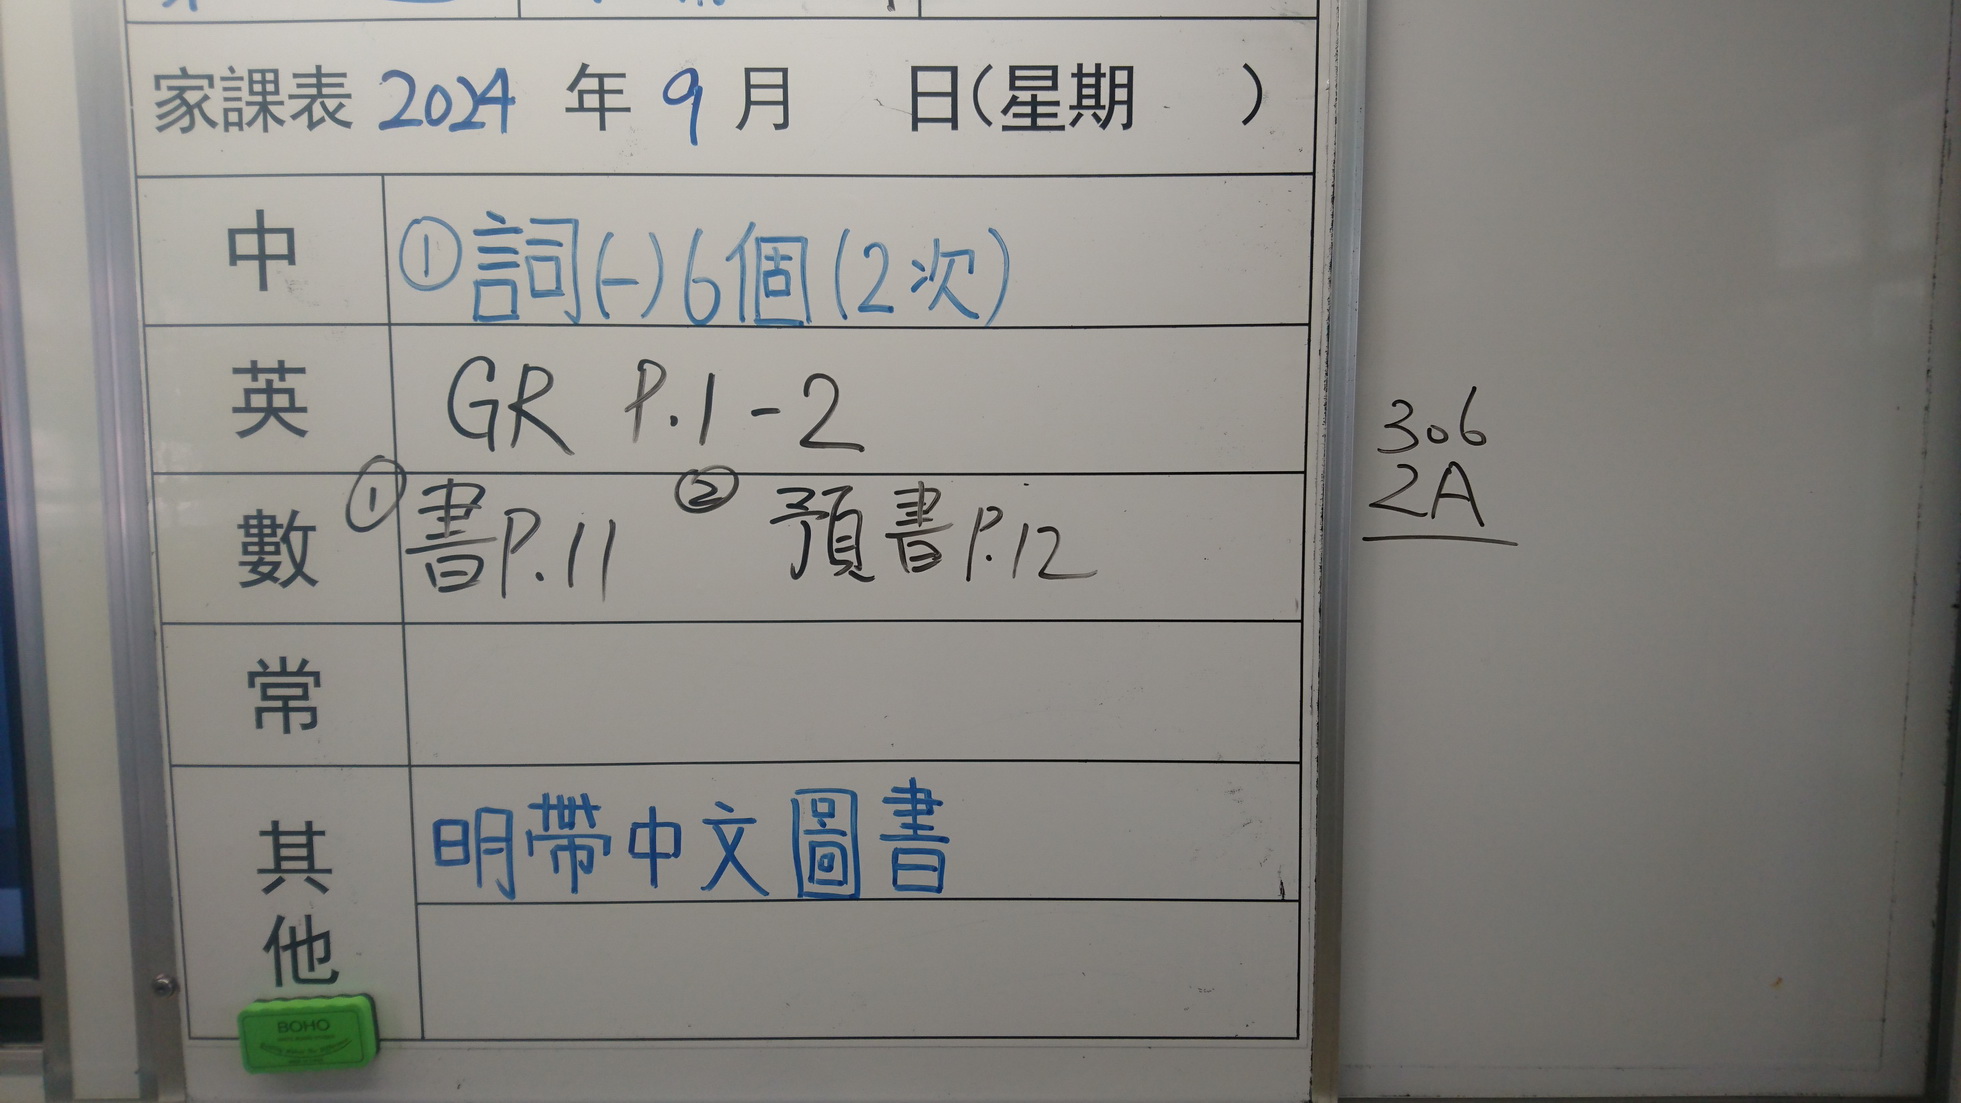 家課表 2024 年 9 月 日(星期 )
中 ①詞(一)6個(2次)
英 GR P.1-2
數 ①書P.11 ②預書P.12
常
其他 明帶中文圖書
BOHO
306
2A